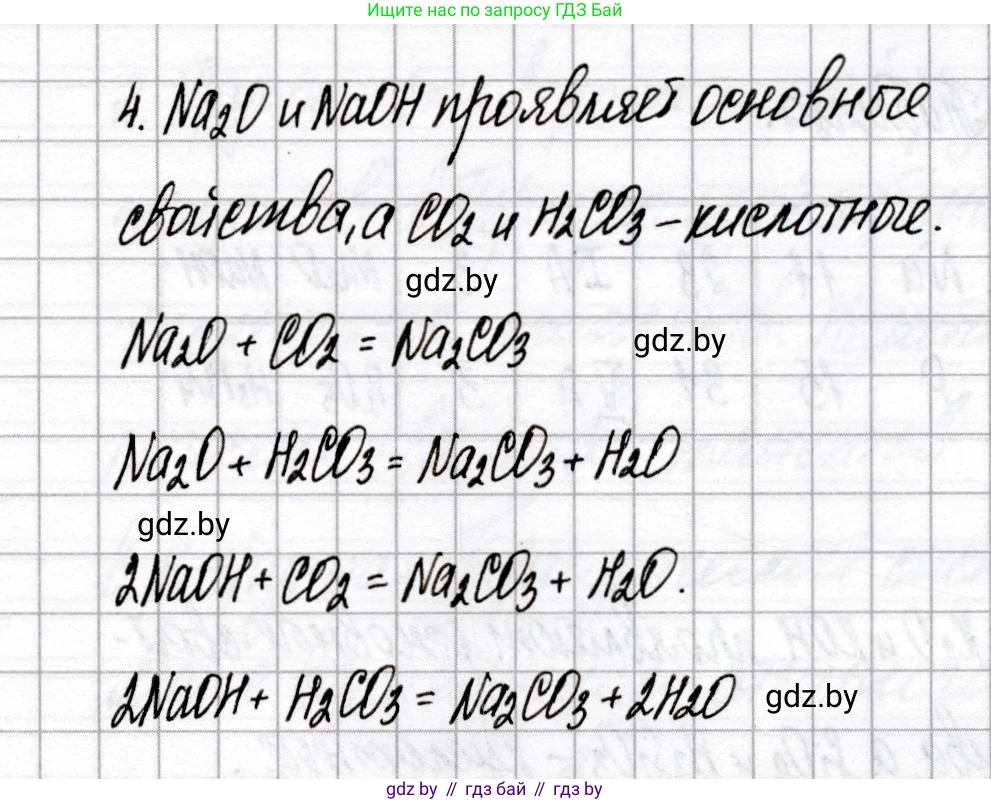 Ищите нас по запросу ГДЗ Бай
4. Na₂O и NaOH проявляет основные
свойства, а CO₂ и H₂CO₃ – кислотные.
gdz.by
Na₂O + CO₂ = Na₂CO₃ gdz.by
Na₂O + H₂CO₃ = Na₂CO₃ + H₂O
gdz.by
2NaOH + CO₂ = Na₂CO₃ + H₂O.
2NaOH + H₂CO₃ = Na₂CO₃ + 2H₂O gdz.by
gdz.by // гдз бай // гдз by